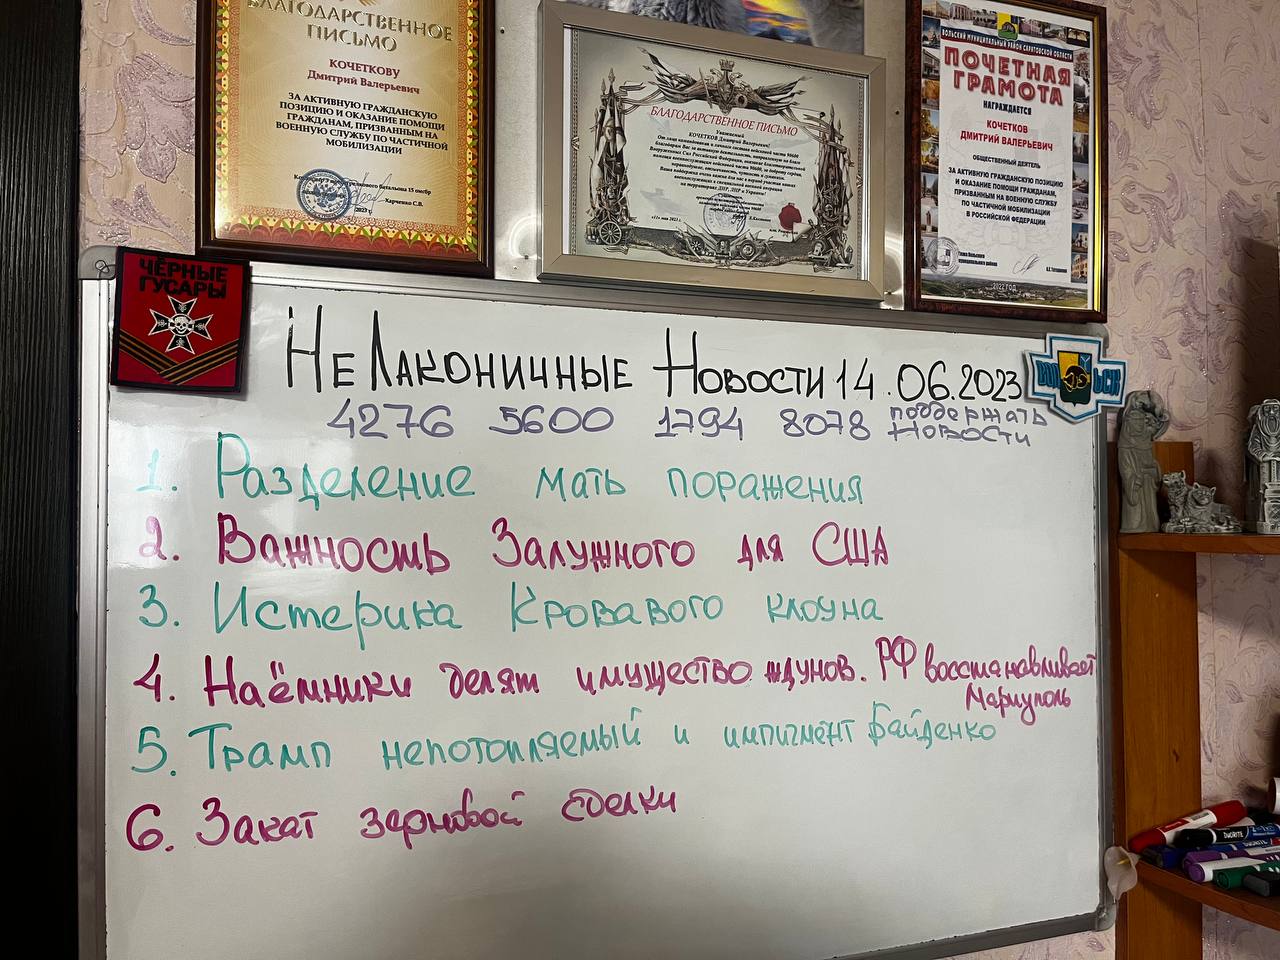 БЛАГОДАРСТВЕННОЕ
ПИСЬМО
КОЧЕТКОВУ
Дмитрий Валерьевич
ЗА АКТИВНУЮ ГРАЖДАНСКУЮ
ПОЗИЦИЮ И ОКАЗАНИЕ ПОМОЩИ
ГРАЖДАНАМ, ПРИЗВАННЫМ НА
ВОЕННУЮ СЛУЖБУ ПО ЧАСТИЧНОЙ
МОБИЛИЗАЦИИ
батальона 15 омсбр
Харченко С.В.
2023 г.
БЛАГОДАРСТВЕННОЕ ПИСЬМО
Уважаемый
КОЧЕТКОВ Дмитрий Валерьевич!
на территориях ДНР, ЛНР и Украины!
ВОЛЬСКИЙ МУНИЦИПАЛЬНЫЙ РАЙОН САРАТОВСКОЙ ОБЛАСТИ
ПОЧЕТНАЯ
ГРАМОТА
НАГРАЖДАЕТСЯ
КОЧЕТКОВ
ДМИТРИЙ ВАЛЕРЬЕВИЧ
ОБЩЕСТВЕННЫЙ ДЕЯТЕЛЬ
ЗА АКТИВНУЮ ГРАЖДАНСКУЮ ПОЗИЦИЮ
И ОКАЗАНИЕ ПОМОЩИ ГРАЖДАНАМ,
ПРИЗВАННЫМ НА ВОЕННУЮ СЛУЖБУ
ПО ЧАСТИЧНОЙ МОБИЛИЗАЦИИ
В РОССИЙСКОЙ ФЕДЕРАЦИИ
2022 ГОД
ЧЁРНЫЕ
ГУСАРЫ
ВОЛЬСК
НеЛаконичные Новости 14.06.2023
4276 5600 1794 8078 поддержать
Новости
1. Разделение мать поражения
2. Важность Залужного для США
3. Истерика Кровавого клоуна
4. Наёмники делят имущество ждунов. РФ восстанавливает
Мариуполь
5. Трамп непотопляемый и импичмент Байденко
6. Закат зерновой сделки